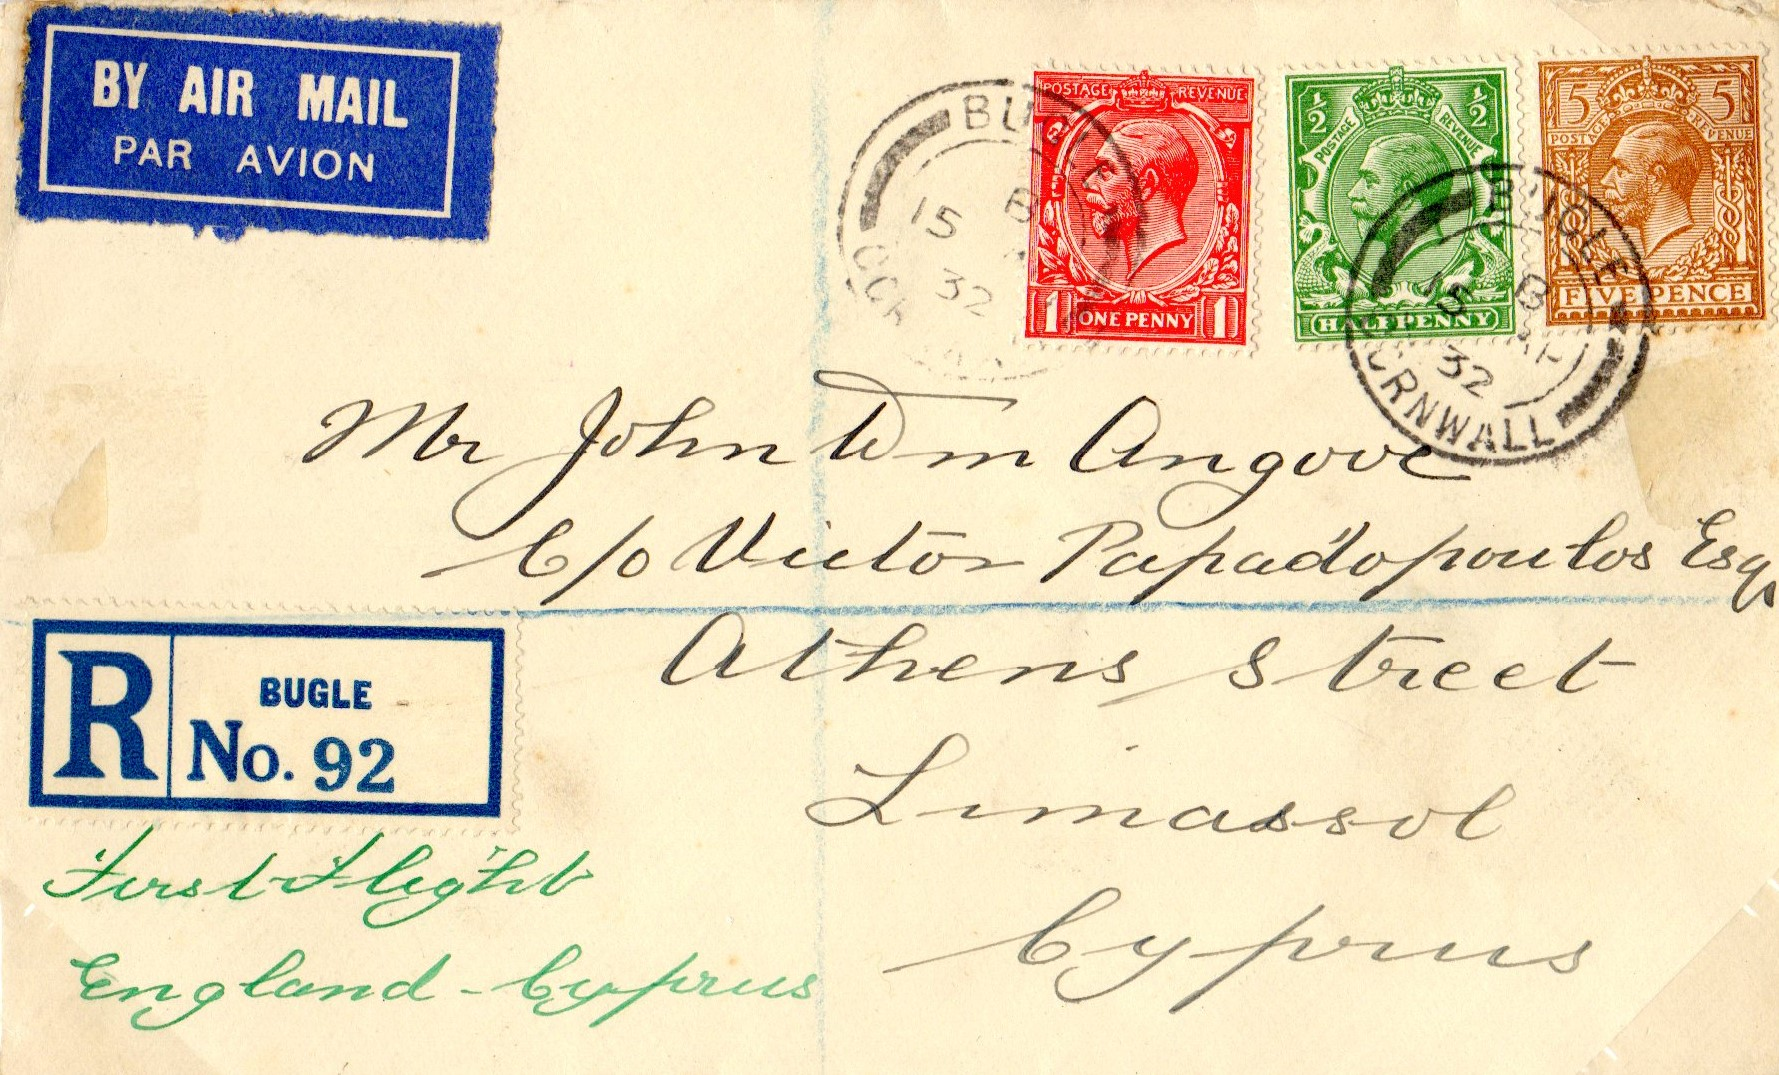 BY AIR MAIL
PAR AVION
POSTAGE REVENUE
1 ONE PENNY 1
½ ½
POSTAGE REVENUE
HALFPENNY
5 5
POSTAGE REVENUE
FIVE PENCE
BUGLE
B
15
32
BUGLE
B
15 AP
32
CORNWALL
Mr John Wm Angove
C/o Victor Papadopoulos Esq
Athens Street
Limassol
Cyprus
R BUGLE
No. 92
First Flight
England - Cyprus